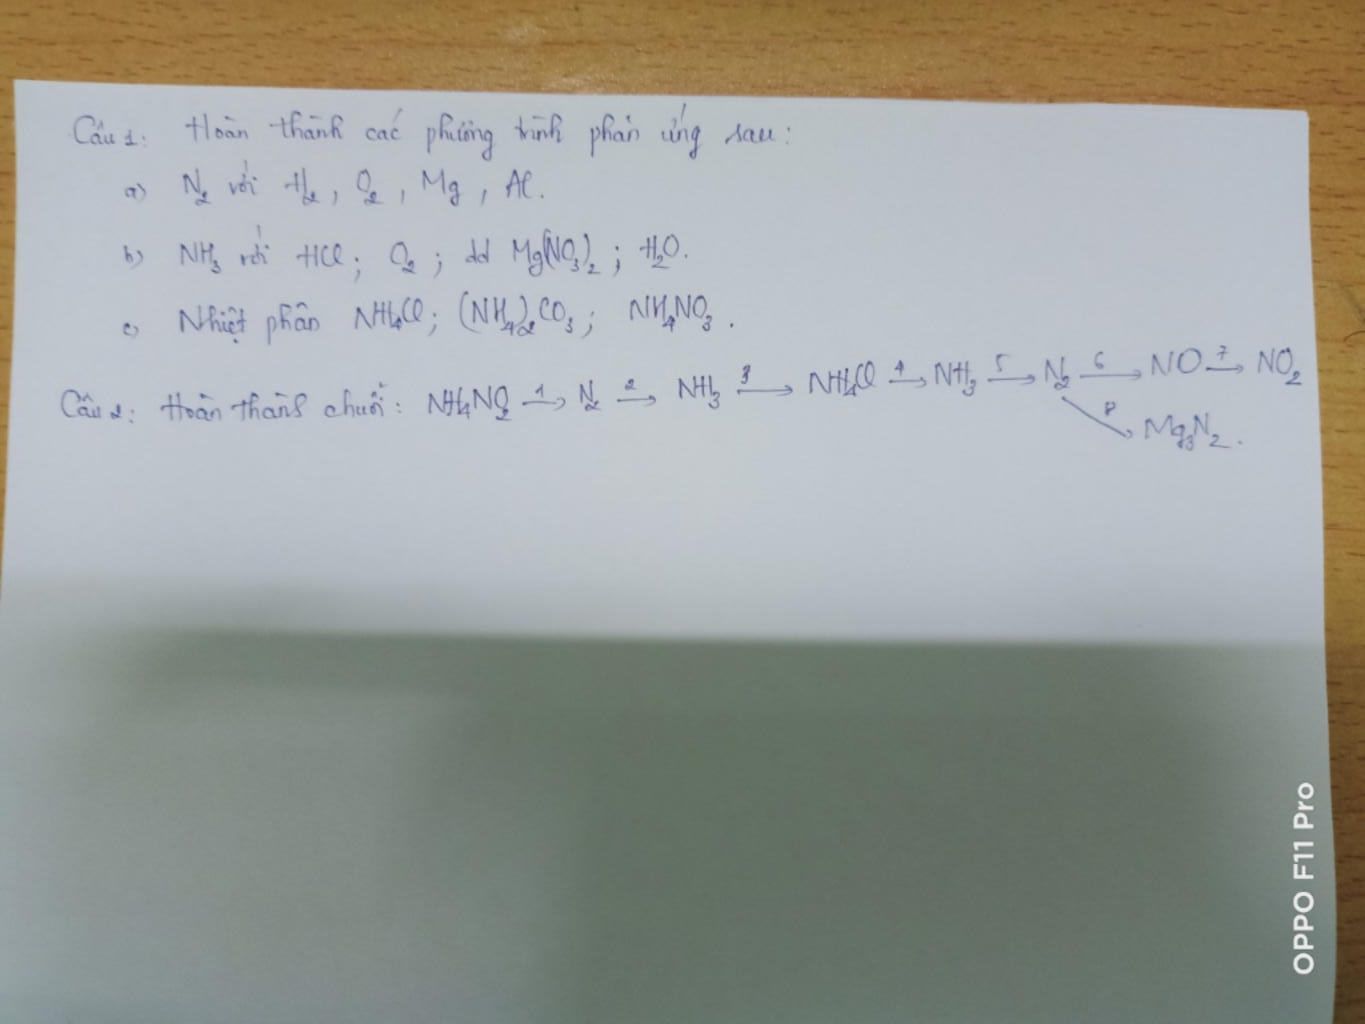 Câu 1: Hoàn thành các phương trình phản ứng sau:
a) N₂ với H₂, O₂, Mg, Al.
b) NH₃ với HCl; O₂; dd Mg(NO₃)₂; H₂O.
c) Nhiệt phân NH₄Cl; (NH₄)₂CO₃; NH₄NO₃.
Câu 2: Hoàn thành chuỗi: NH₄NO₂ 1→ N₂ 2→ NH₃ 3→ NH₄Cl 4→ NH₃ 5→ N₂ 6→ NO 7→ NO₂
8↘ Mg₃N₂.
OPPO F11 Pro